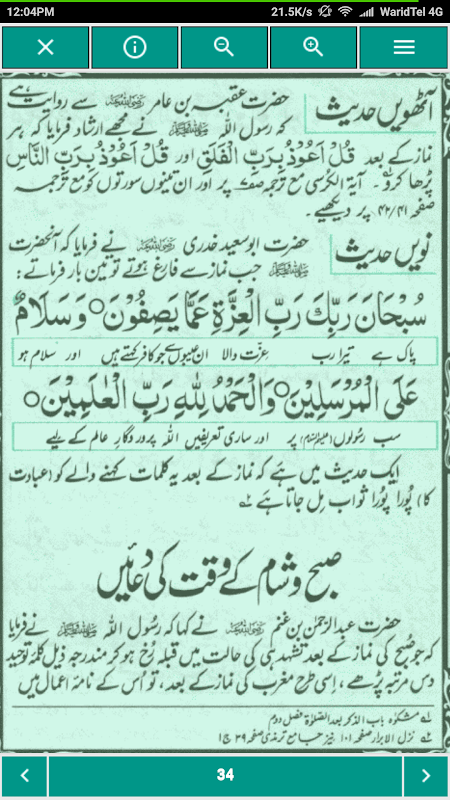 12:04PM 21.5K/s WaridTel 4G
آٹھویں حدیث
حضرت عقبہ بن عامر رضی اللہ عنہ سے روایت ہے
کہ رسول اللہ ﷺ نے مجھے ارشاد فرمایا کہ ہر
نماز کے بعد قُلْ اَعُوْذُ بِرَبِّ الْفَلَقِ اور قُلْ اَعُوْذُ بِرَبِّ النَّاسِ
پڑھا کرو۔ آیۃ الکرسی مع ترجمہ صفحہ پر اور ان تینوں سورتوں کو مع ترجمہ
صفحہ ۴۲/۴۱ پر دیکھیے۔
نویں حدیث
حضرت ابو سعید خدری رضی اللہ عنہ نے فرمایا کہ آنحضرت
ﷺ جب نماز سے فارغ ہوتے تو تین بار فرماتے:
سُبْحَانَ رَبِّكَ رَبِّ الْعِزَّةِ عَمَّا يَصِفُوْنَ ○ وَسَلَامٌ
پاک ہے تیرا رب عزت والا ان عیبوں سے جو کافر کہتے ہیں اور سلام ہو
عَلَى الْمُرْسَلِيْنَ ○ وَالْحَمْدُ لِلّٰهِ رَبِّ الْعٰلَمِيْنَ ○
سب رسولوں (علیہم السلام) پر اور ساری تعریفیں اللہ پروردگارِ عالم کے لیے
ایک حدیث میں ہے کہ نماز کے بعد یہ کلمات کہنے والے کو (عبادت
کا) پُورا پُورا ثواب مِل جاتا ہے ؎
صبح و شام کے وقت کی دعائیں
حضرت عبدالرحمٰن بن غنم رضی اللہ عنہ نے کہا کہ رسُول اللہ ﷺ نے فرمایا
کہ جو صُبح کی نماز کے بعد تشہد ہی کی حالت میں قبلہ رُخ ہو کر مندرجہ ذیل کلمۂ توحید
دس مرتبہ پڑھے، اسی طرح مغرب کی نماز کے بعد، تو اُس کے نامۂ اعمال میں
؎ مشکوٰۃ باب الذکر بعد الصلوٰۃ فصل دوم
؎ نزل الابرار صفحہ ۱۰۱ نیز جامع ترمذی صفحہ ۳۹ ج۱
34